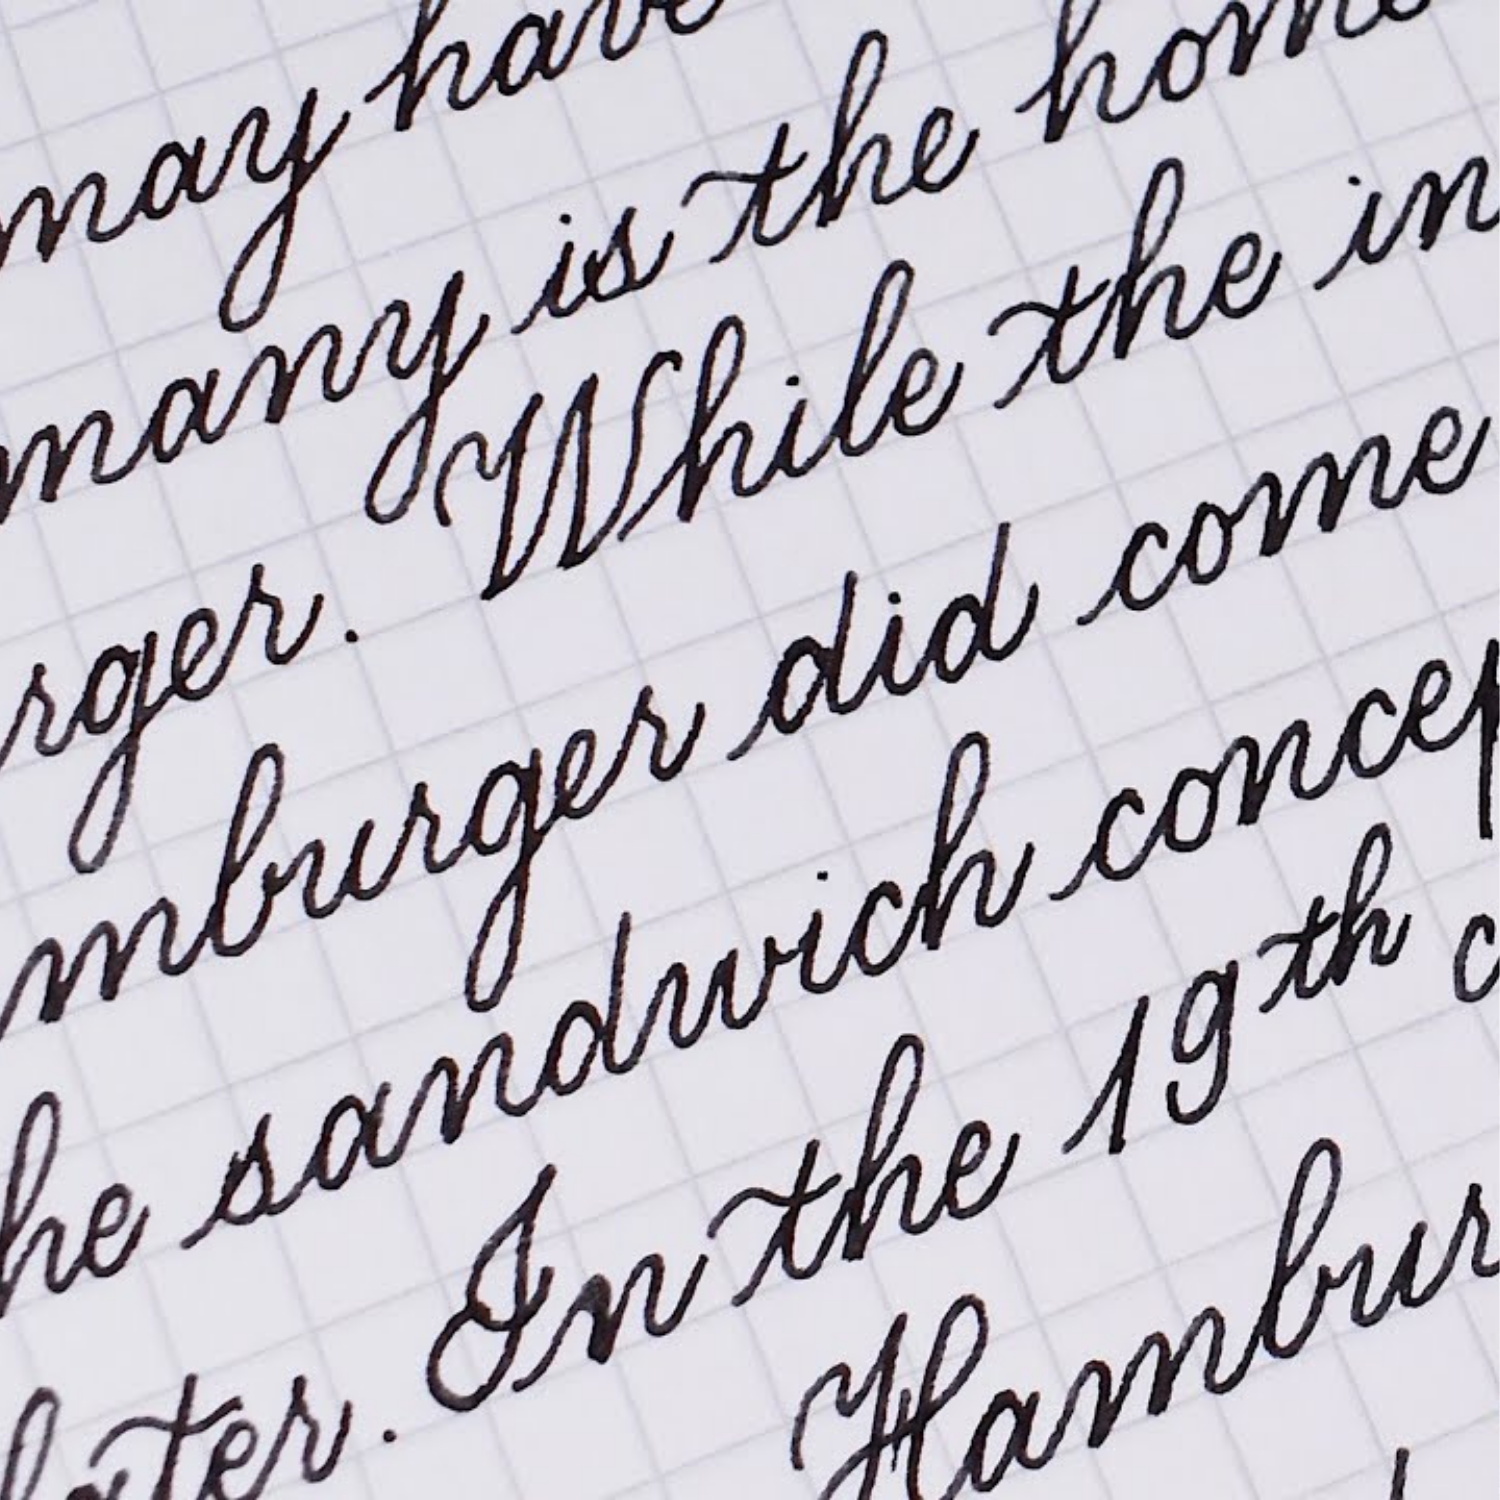 may have
many is the home
rger. While the in
mburger did come
he sandwich concep
later. In the 19th c
Hambur